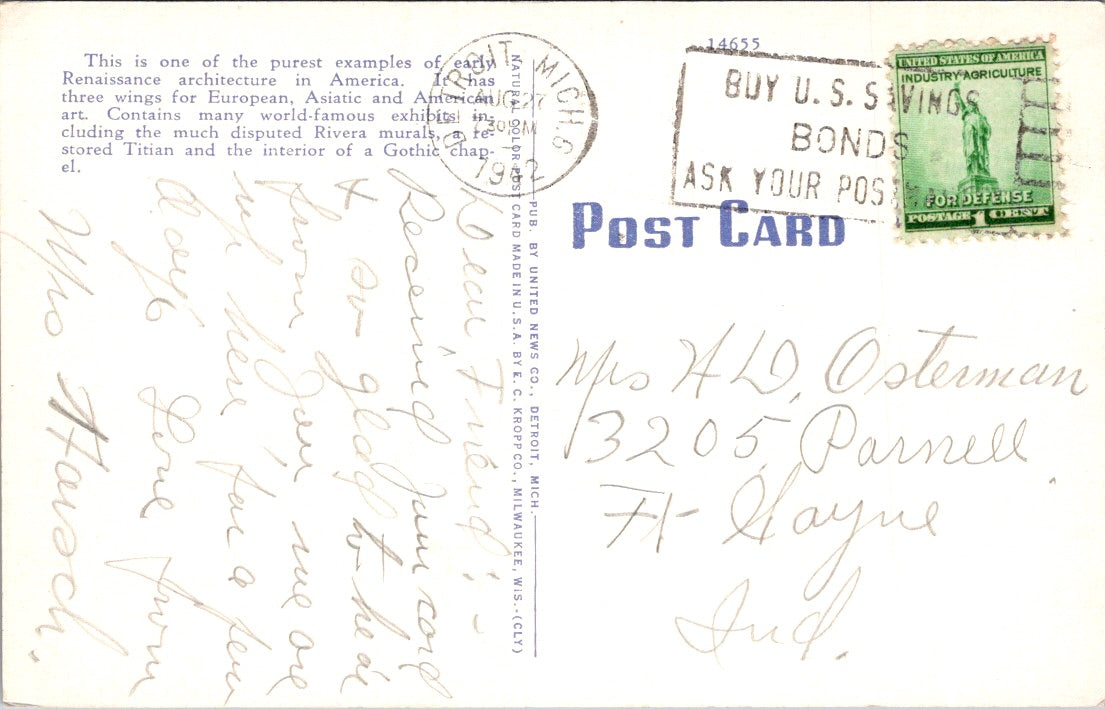 This is one of the purest examples of early
Renaissance architecture in America. It has
three wings for European, Asiatic and American
art. Contains many world-famous exhibits in-
cluding the much disputed Rivera murals, a re-
stored Titian and the interior of a Gothic chap-
el.
Dear Friend: -
Received your card
+ so glad to hear
from you, we are
up here for a few
days Love from
Mrs Harsch.
NATURAL COLOR POST CARD MADE IN U.S.A. BY E. C. KROPP CO., MILWAUKEE, WIS.-(CLY)
PUB. BY UNITED NEWS CO., DETROIT, MICH.
DETROIT, MICH. 6
AUG 27
PM
1942
14655
BUY U.S. SAVINGS
BONDS
ASK YOUR POSTMASTER
UNITED STATES OF AMERICA
INDUSTRY AGRICULTURE
FOR DEFENSE
POSTAGE 1 CENT
POST CARD
Mrs H D, Osterman
3205, Parnell
Ft Wayne
Ind.